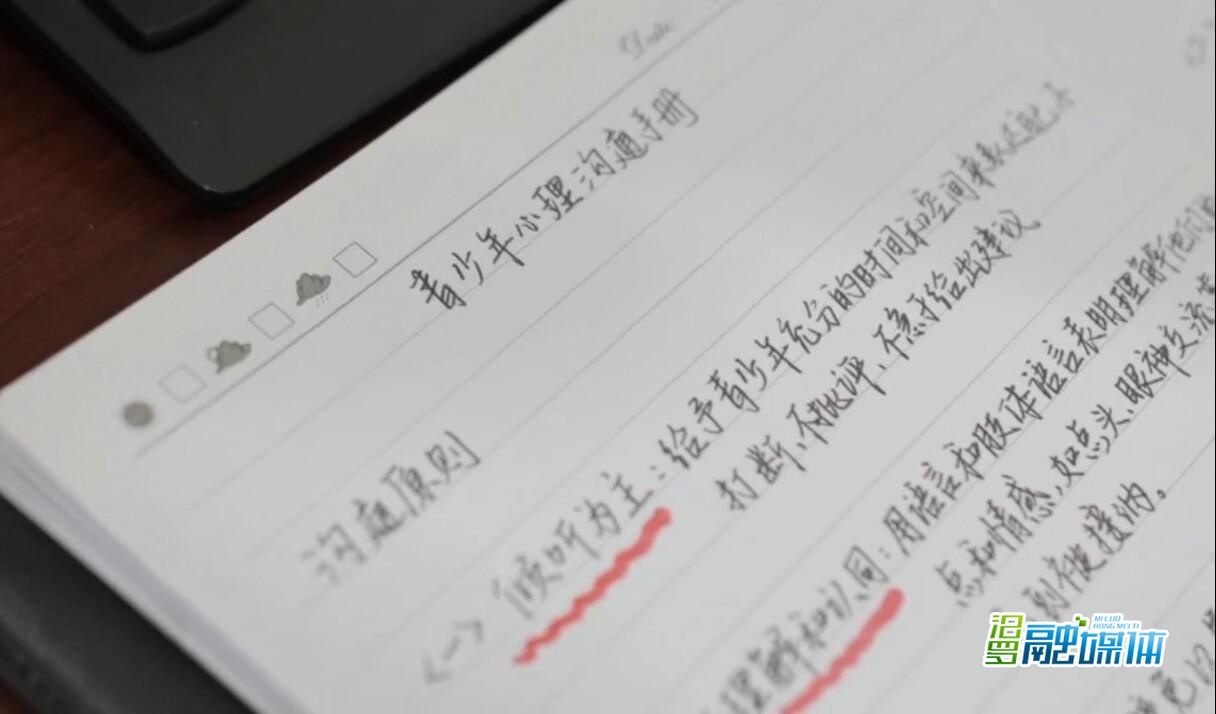 Date
青少年心理沟通手册
沟通原则
<一> 倾听为主：给予青少年充分的时间和空间来表达自己，不
打断，不批评，不急于给出建议
理解和认同：用语言和肢体语言表明理解他们的
点和情感，如点头、眼神交流
到被接纳。
避免
汨罗融媒体
MI LUO
RONG MEI TI